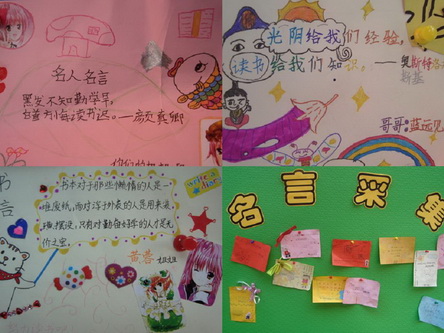 名人名言
黑发不知勤学早,
白首方悔读书迟。——颜真卿
光阴给我们经验,
读书给我们知识。——奥斯特洛
哥哥:蓝远见
书
言
书本对于那些懒惰的人是一
堆废纸,而对浮于外表的人是用来装
璜摆设,只有对勤奋好学的人才是无
价之宝。
黄蓉 姐姐
名言采集